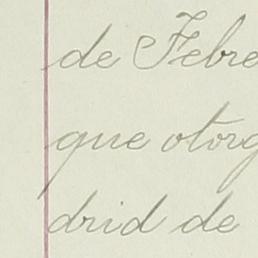 de Febre
que otorg
drid de